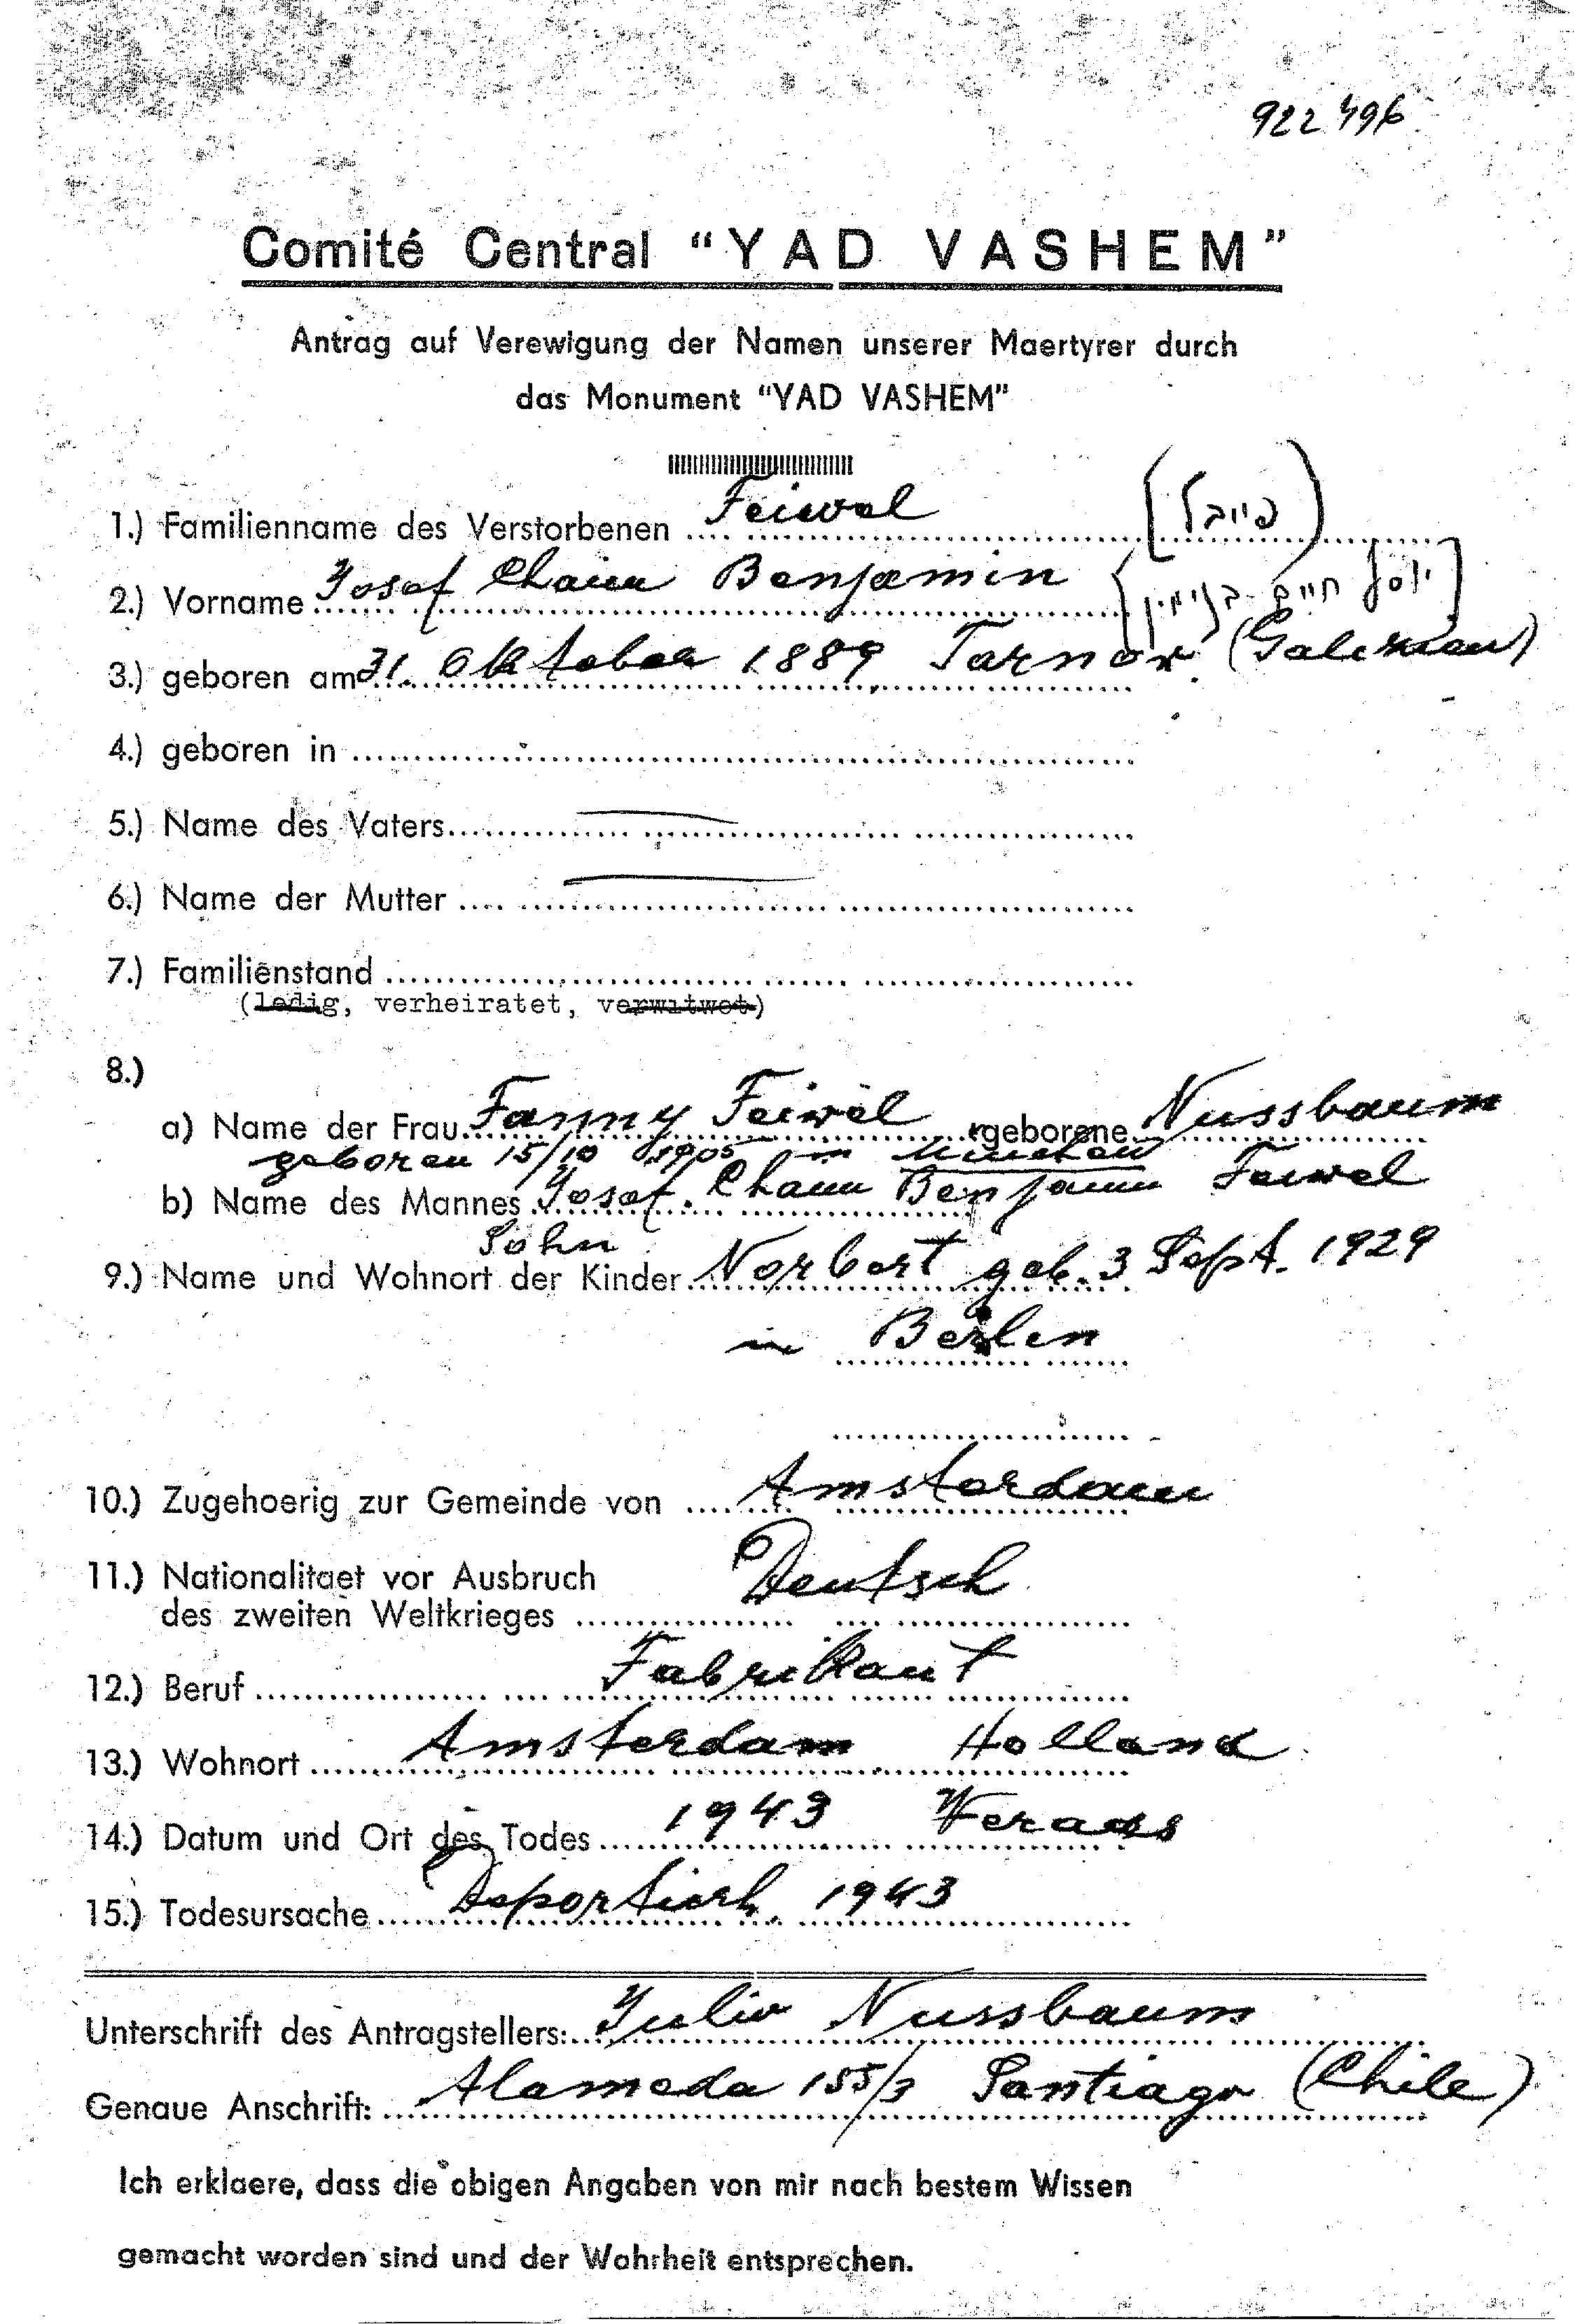 922496
Comité Central “YAD VASHEM”
Antrag auf Verewigung der Namen unserer Maertyrer durch
das Monument “YAD VASHEM”
1.) Familienname des Verstorbenen Feiwel (פייבל)
2.) Vorname Josef Chaim Benjamin [יוסף חיים בנימין]
3.) geboren am 31. Oktober 1889 Tarnow (Galizien)
4.) geboren in
5.) Name des Vaters —
6.) Name der Mutter —
7.) Familienstand
(ledig, verheiratet, verwitwet)
8.)
a) Name der Frau Fanny Feiwel geborene Nussbaum
geboren 15/10 1905 in München
b) Name des Mannes Josef Chaim Benjamin Feiwel
Sohn
9.) Name und Wohnort der Kinder Norbert geb. 3 Sept. 1929
in Berlin
10.) Zugehoerig zur Gemeinde von Amsterdam
11.) Nationalitaet vor Ausbruch Deutsch
des zweiten Weltkrieges
12.) Beruf Fabrikant
13.) Wohnort Amsterdam Holland
14.) Datum und Ort des Todes 1943
15.) Todesursache Deportiert 1943
Unterschrift des Antragstellers: Julio Nussbaum
Genaue Anschrift: Alameda 155/3 Santiago (Chile)
Ich erklaere, dass die obigen Angaben von mir nach bestem Wissen
gemacht worden sind und der Wahrheit entsprechen.